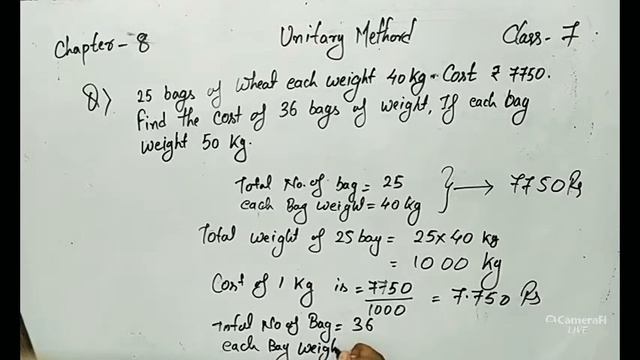 Chapter-8 Unitary Method Class-7
Q> 25 bags of wheat each weight 40 kg. Cost ₹ 7750.
Find the cost of 36 bags of weight, If each bag
weight 50 Kg.
Total No. of bag = 25
each Bag weight = 40 kg } → 7750 Rs
Total weight of 25 bag = 25×40 kg
= 1000 kg
Cost of 1 Kg is = 7750/1000 = 7.750 Rs
Total No of Bag = 36
each Bag weigh
CameraFi
LIVE